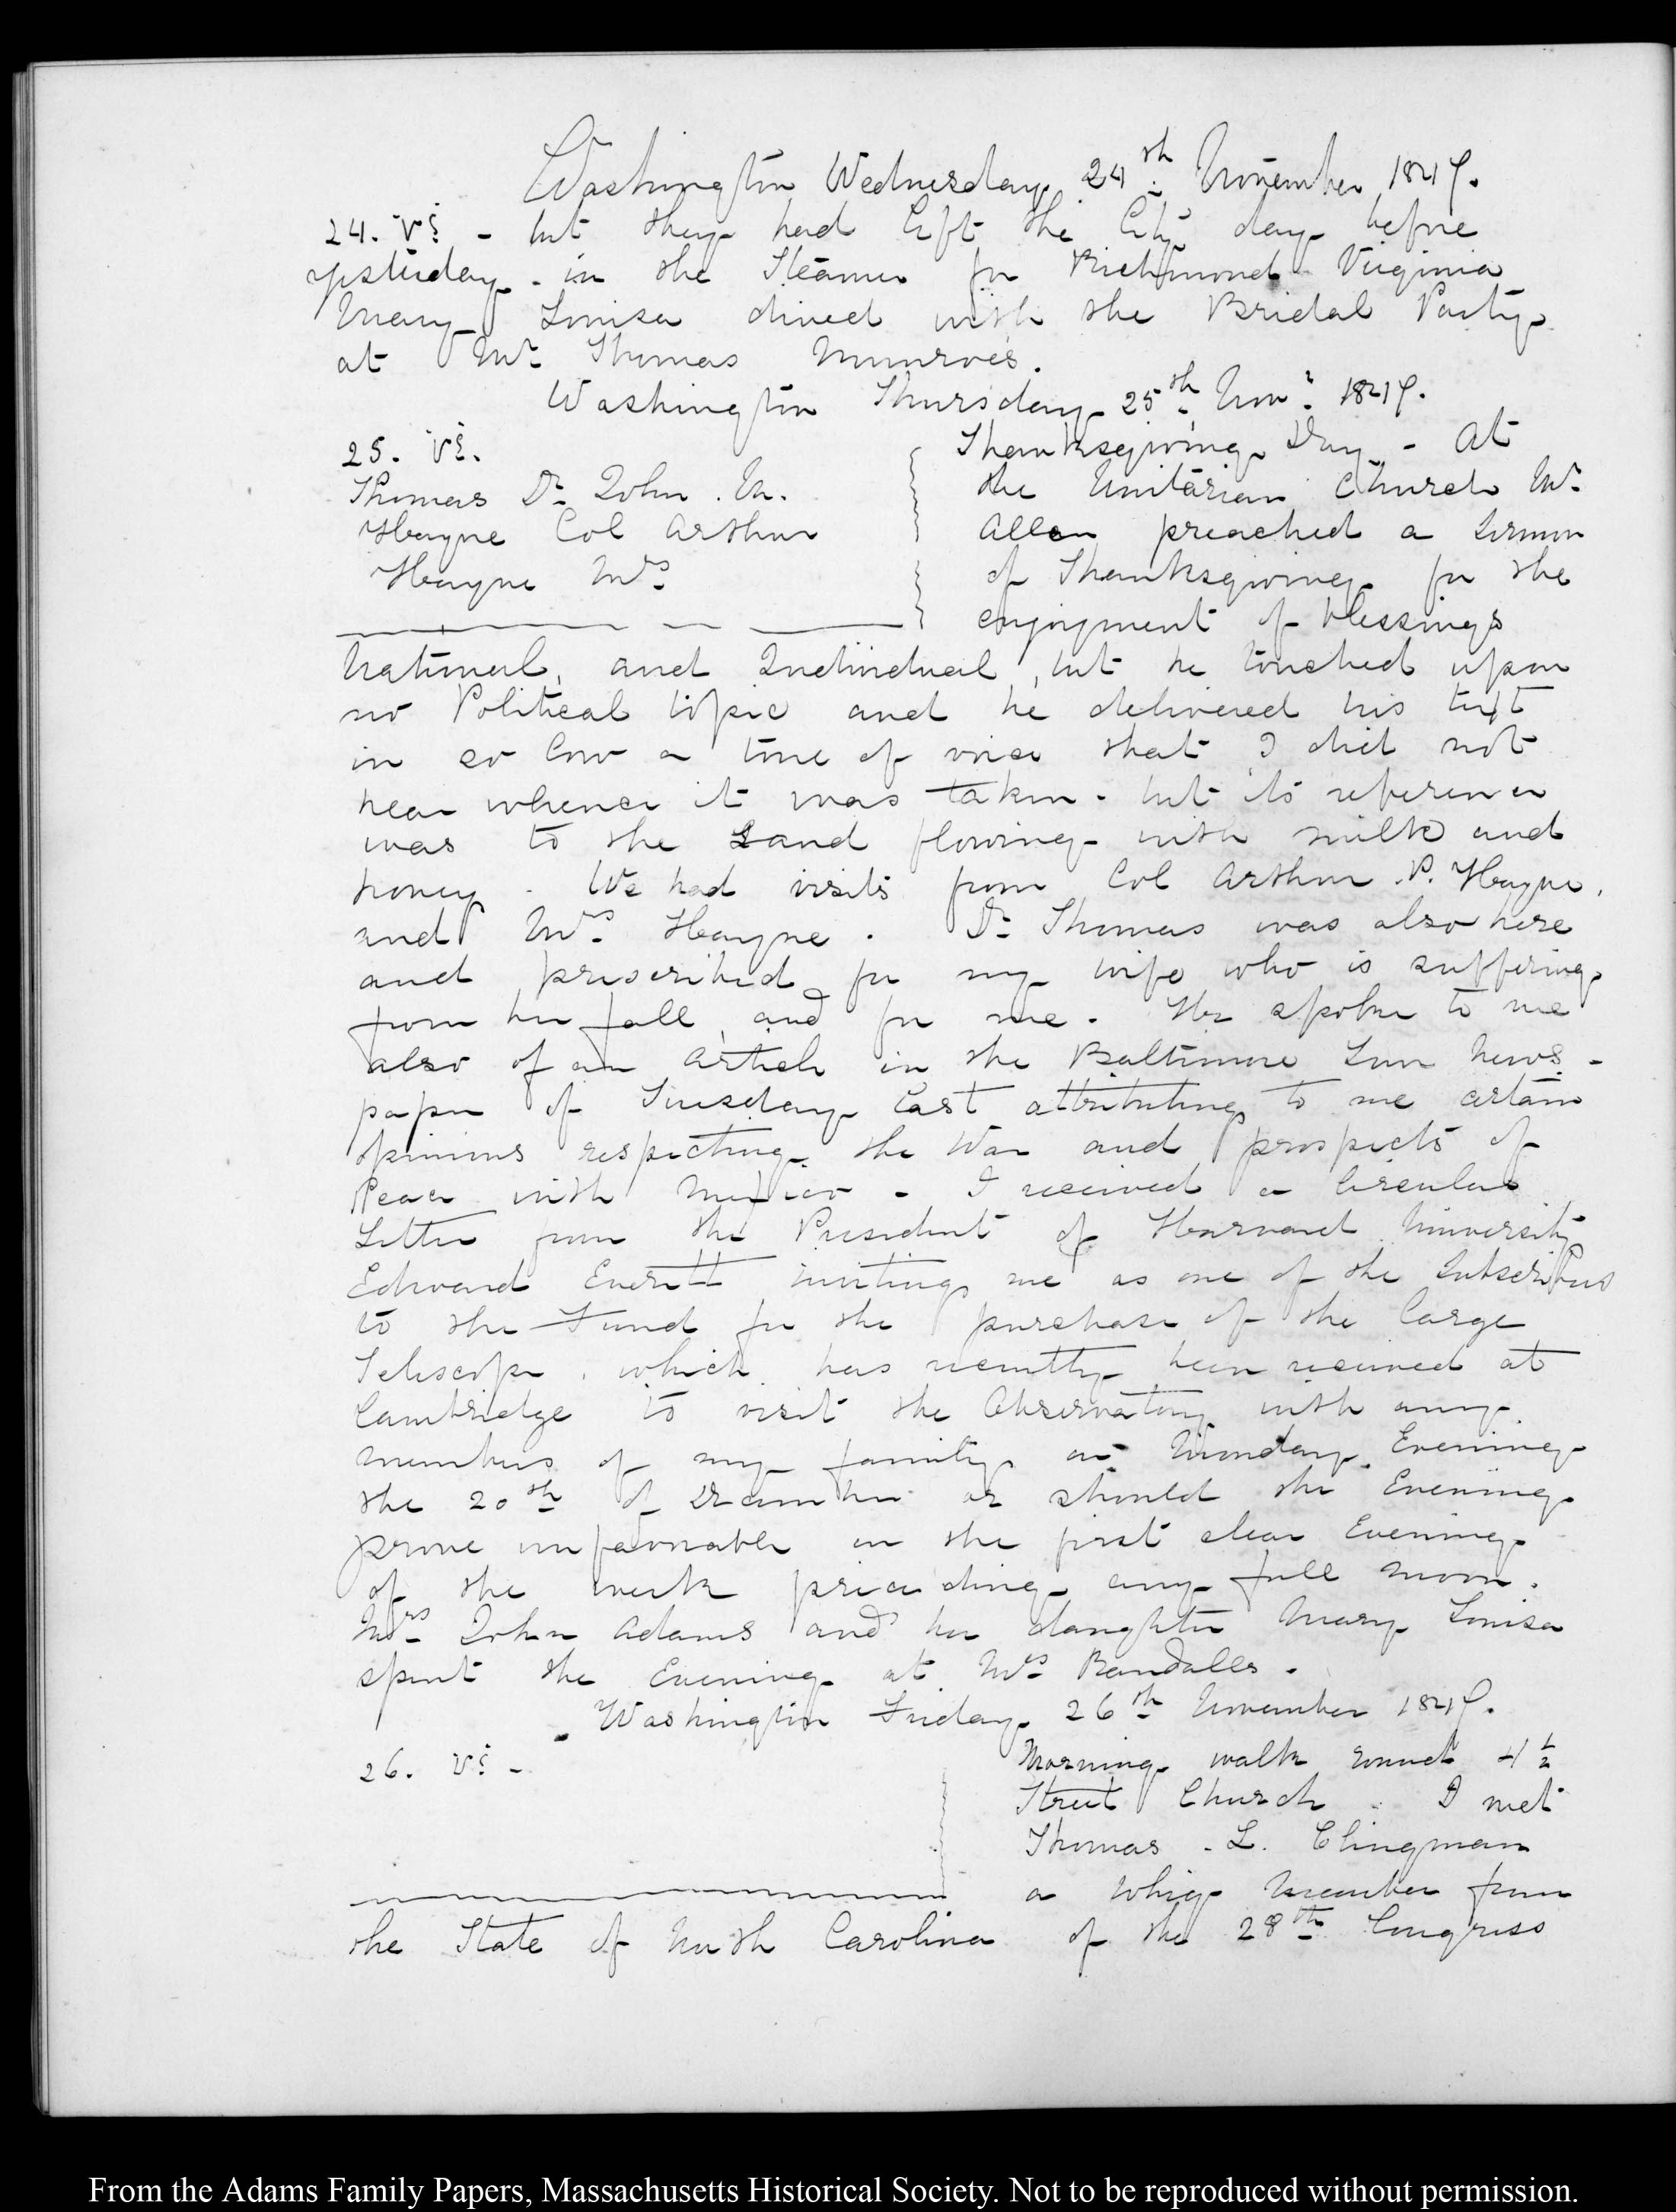 Washington Wednesday 24th November 1847.
24. VI. - but they had left the City day before
yesterday - in the Steamer for Richmond Virginia
Mary Louisa dined with the Bridal Party
at Mr Thomas Munroe's.
Washington Thursday 25th Novr 1847.
25. VI.
Thomas Dr John. M.
Hayne Col Arthur
Hayne Mrs
Thanksgiving Day - At
the Unitarian Church Mr
Allen preached a Sermon
of Thanksgiving for the
enjoyment of blessings
National, and Individual, but he touched upon
no Political topic and he delivered his text
in so low a tone of voice that I did not
hear whence it was taken - but its reference
was to the Land flowing with milk and
honey - We had visits from Col Arthur P. Hayne,
and Mrs Hayne. Dr Thomas was also here
and prescribed for my wife who is suffering
from her fall, and for me. He spoke to me
also of an Article in the Baltimore Sun News-
paper of Tuesday last attributing to me certain
opinions respecting the War and prospects of
Peace with Mexico - I received a Circular
Letter from the President of Harvard University
Edward Everett inviting me as one of the Subscribers
to the Fund for the purchase of the large
Telescope, which has recently been received at
Cambridge to visit the Observatory with any
members of my family on Monday Evening
the 20th of December or should the Evening
prove unfavorable on the first clear Evening
of the week preceding any full moon.
Mrs John Adams and her daughter Mary Louisa
spent the Evening at Mrs Randalls.
Washington Friday 26th November 1847.
26. VI -
Morning walk round 4 1/2
Street Church. I met
Thomas L. Clingman
a Whig Member from
the State of North Carolina of the 28th Congress
From the Adams Family Papers, Massachusetts Historical Society. Not to be reproduced without permission.